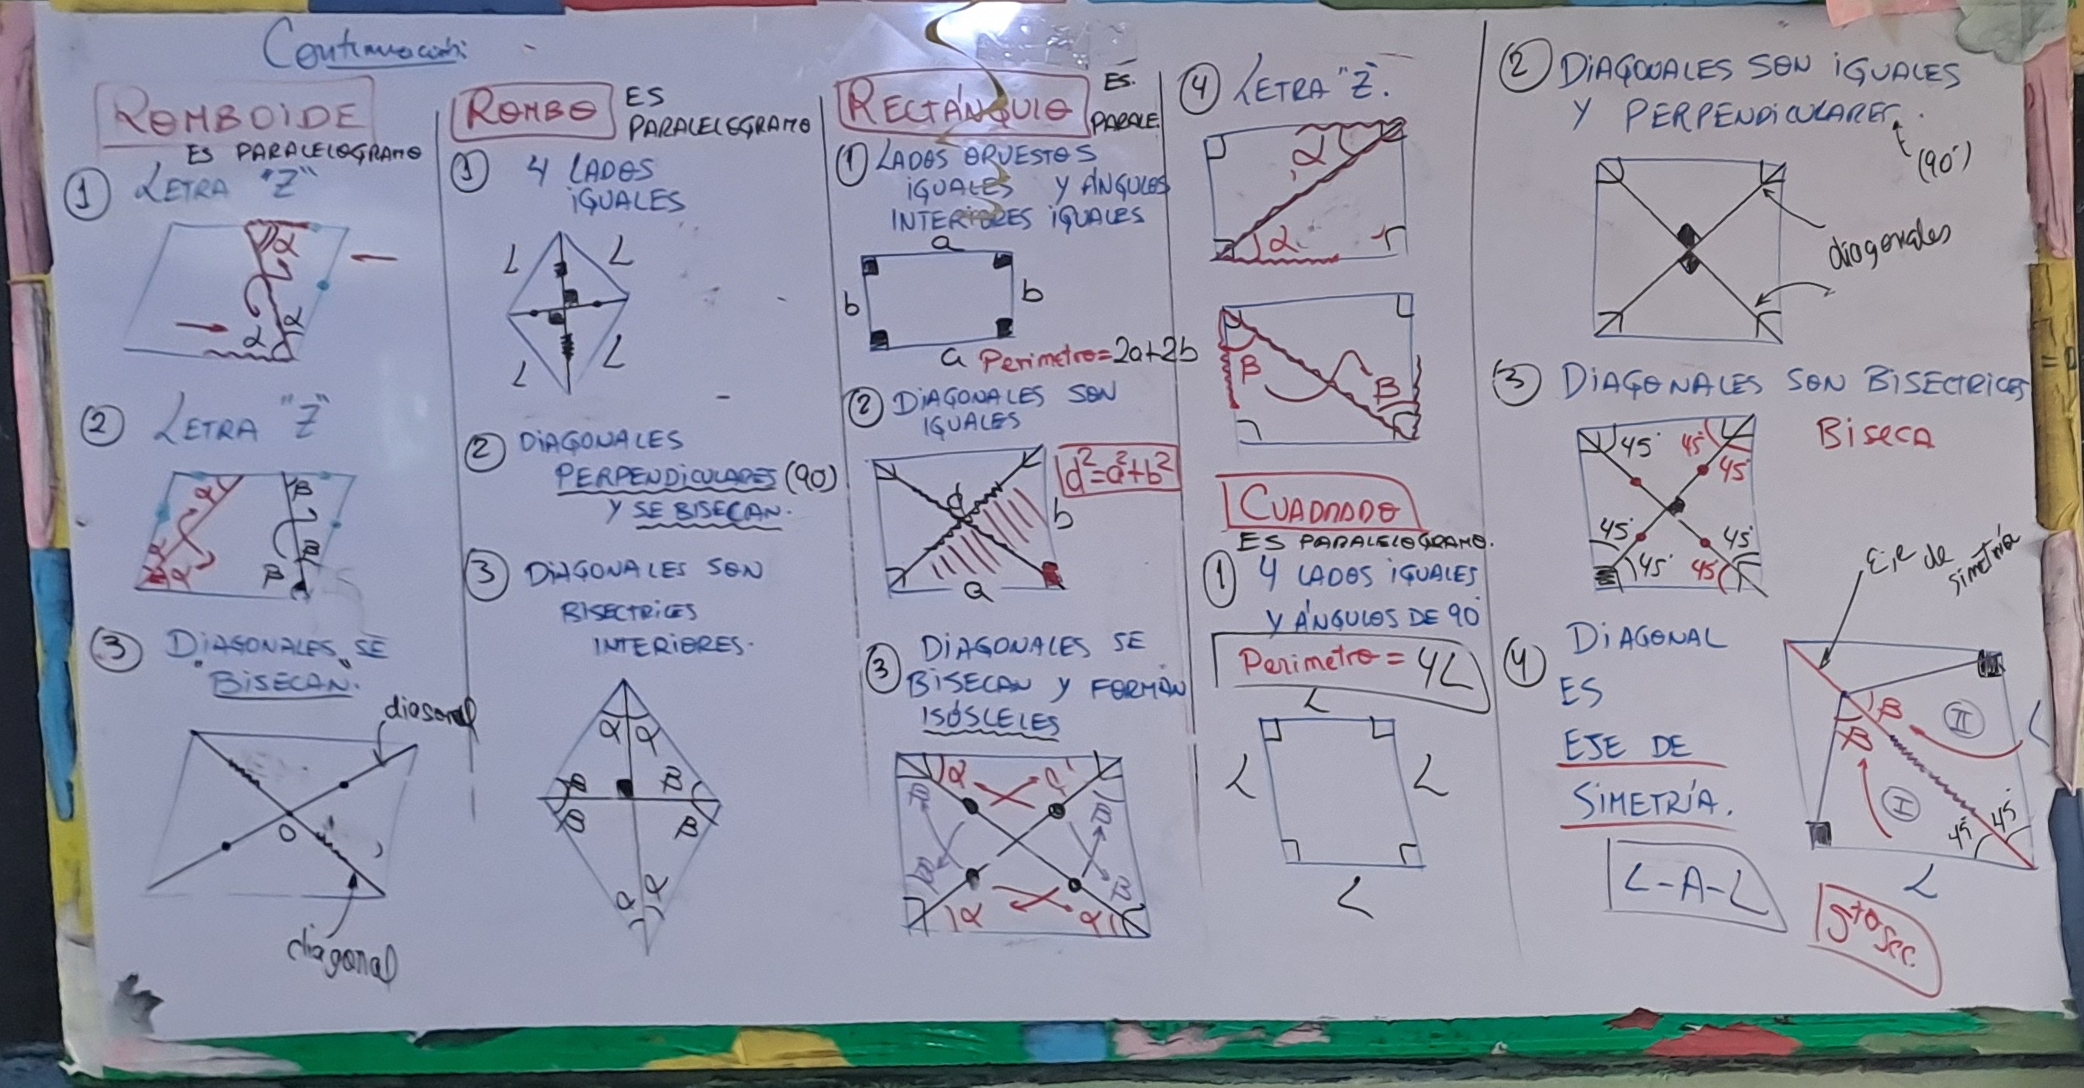 Continuación:
ROMBOIDE
ES PARALELOGRAMO
① LETRA "Z"
α
α
α
② LETRA "Z"
α
α
β
β
β
③ DIAGONALES SE
"BISECAN".
diagonal
O
diagonal
ROMBO
ES
PARALELOGRAMO
① 4 LADOS
IGUALES
L
L
L
L
② DIAGONALES
PERPENDICULARES (90)
Y SE BISECAN.
③ DIAGONALES SON
BISECTRICES
INTERIORES.
α α
β β
β β
α α
RECTÁNGULO
ES.
PARALE.
① LADOS OPUESTOS
IGUALES Y ÁNGULOS
INTERIORES IGUALES
a
b b
a Perimetro=2a+2b
② DIAGONALES SON
IGUALES
d²=a²+b²
d
b
a
③ DIAGONALES SE
BISECAN Y FORMAN
ISÓSCLELES
α α
β β
β β
α α
④ LETRA "Z".
α
α
β
β
CUADRADO
ES PARALELOGRAMO.
① 4 LADOS IGUALES
Y ÁNGULOS DE 90°
Perimetro = 4L
L
L L
L
② DIAGONALES SON IGUALES
Y PERPENDICULARES.
(90°)
diagonales
③ DIAGONALES SON BISECTRICES
Biseca
45° 45°
45°
45° 45°
45° 45°
Eje de
simetría
④ DIAGONAL
ES
EJE DE
SIMETRÍA.
L-A-L
β
β
II
I
L
45° 45°
L
5to sec.